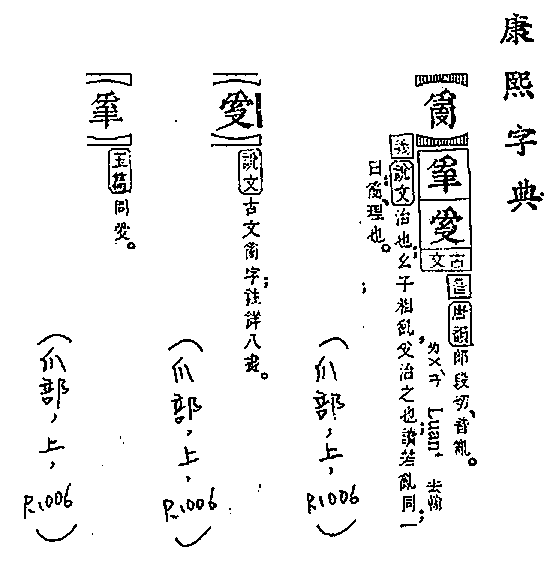 康熙字典
𤔔
古文
音 唐韻 郎段切、音亂。
ㄌㄨㄢˋ Luan⁴ 去翰
義 說文 治也；幺子相亂、𠬪治之也；讀若亂同；一
曰𤔔、理也。
(爪部，上，P.1006)
說文 古文𤔔字；註詳八畫。
(爪部，上，P.1006)
玉篇 同
(爪部，上，P.1006)